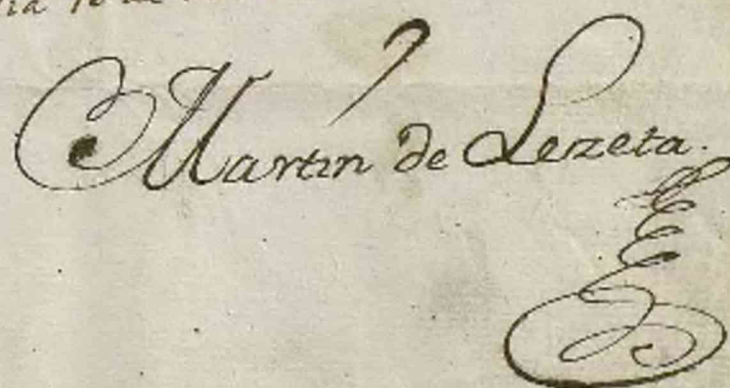 Martin de Lezeta.